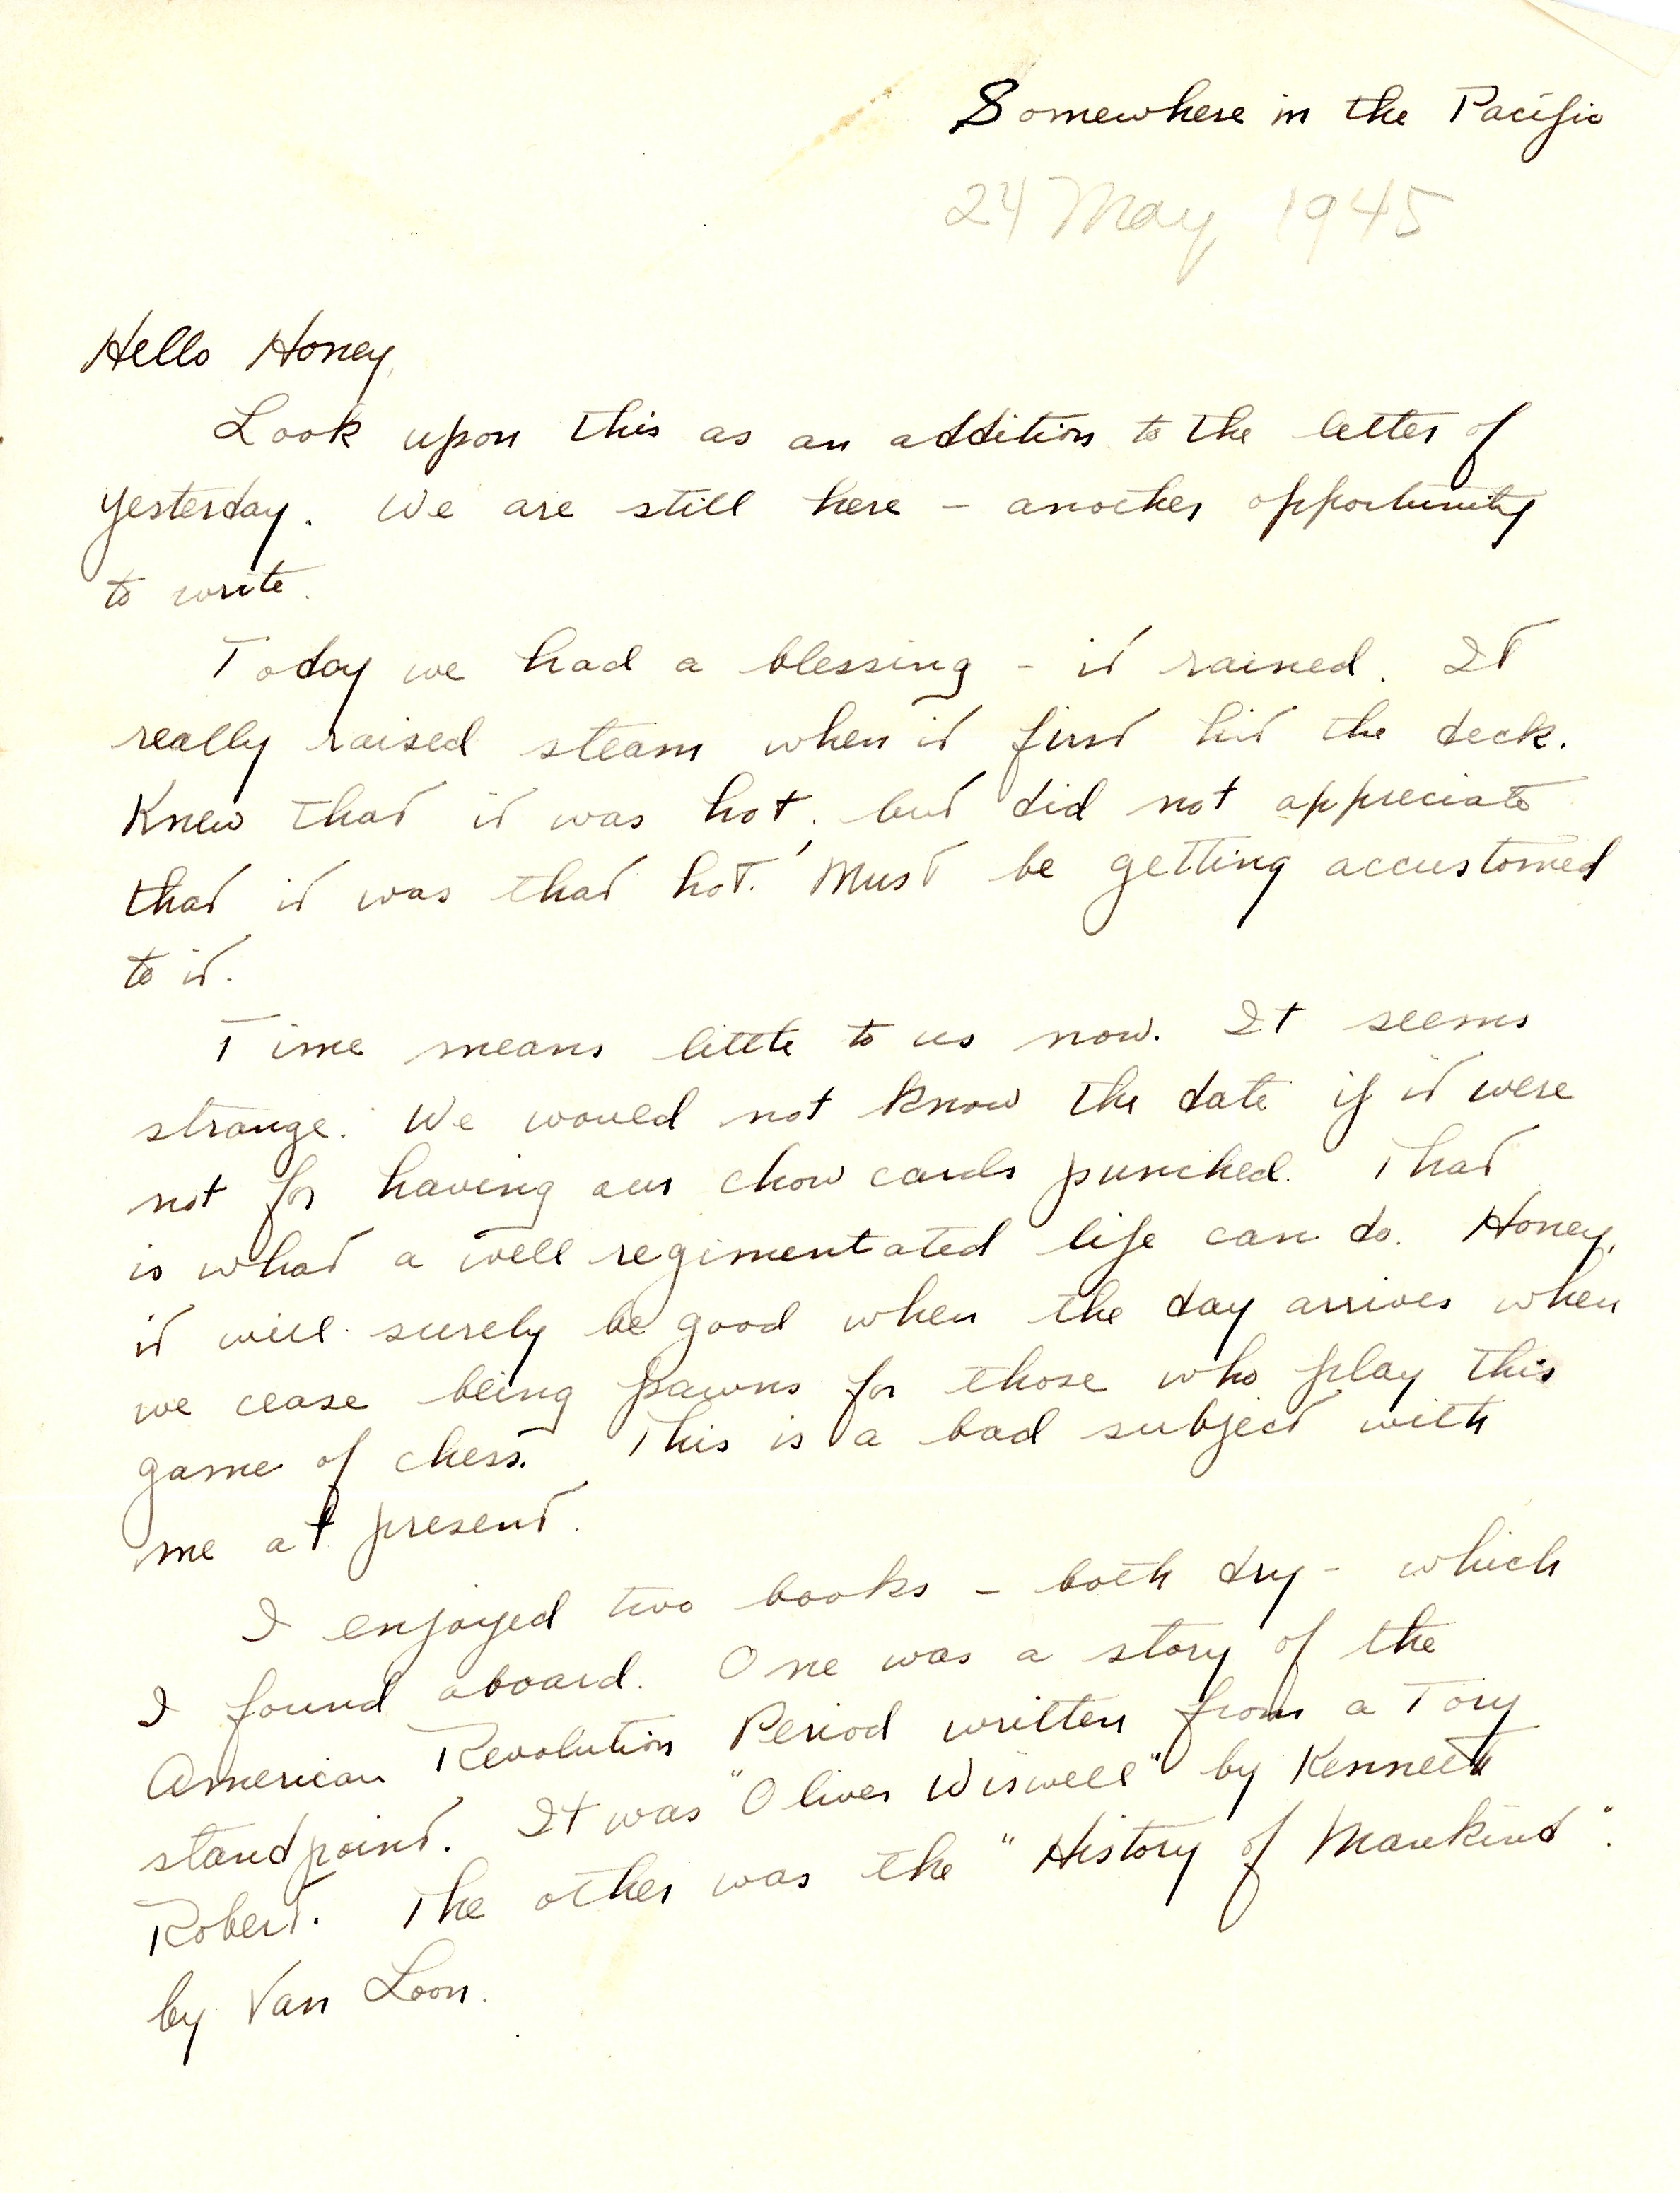 Somewhere in the Pacific
24 May 1945
Hello Honey,
Look upon this as an addition to the letter of
yesterday. We are still here - another opportunity
to write.
Today we had a blessing - it rained. It
really raised steam when it first hit the deck.
Knew that it was hot, but did not appreciate
that it was that hot. Must be getting accustomed
to it.
Time means little to us now. It seems
strange. We would not know the date if it were
not for having our chow cards punched. That
is what a well regimentated life can do. Honey,
it will surely be good when the day arrives when
we cease being pawns for those who play this
game of chess. This is a bad subject with
me at present.
I enjoyed two books - both dry - which
I found aboard. One was a story of the
American Revolution Period written from a Tory
standpoint. It was "Oliver Wiswell" by Kenneth
Robert. The other was the "History of Mankind".
by Van Loon.